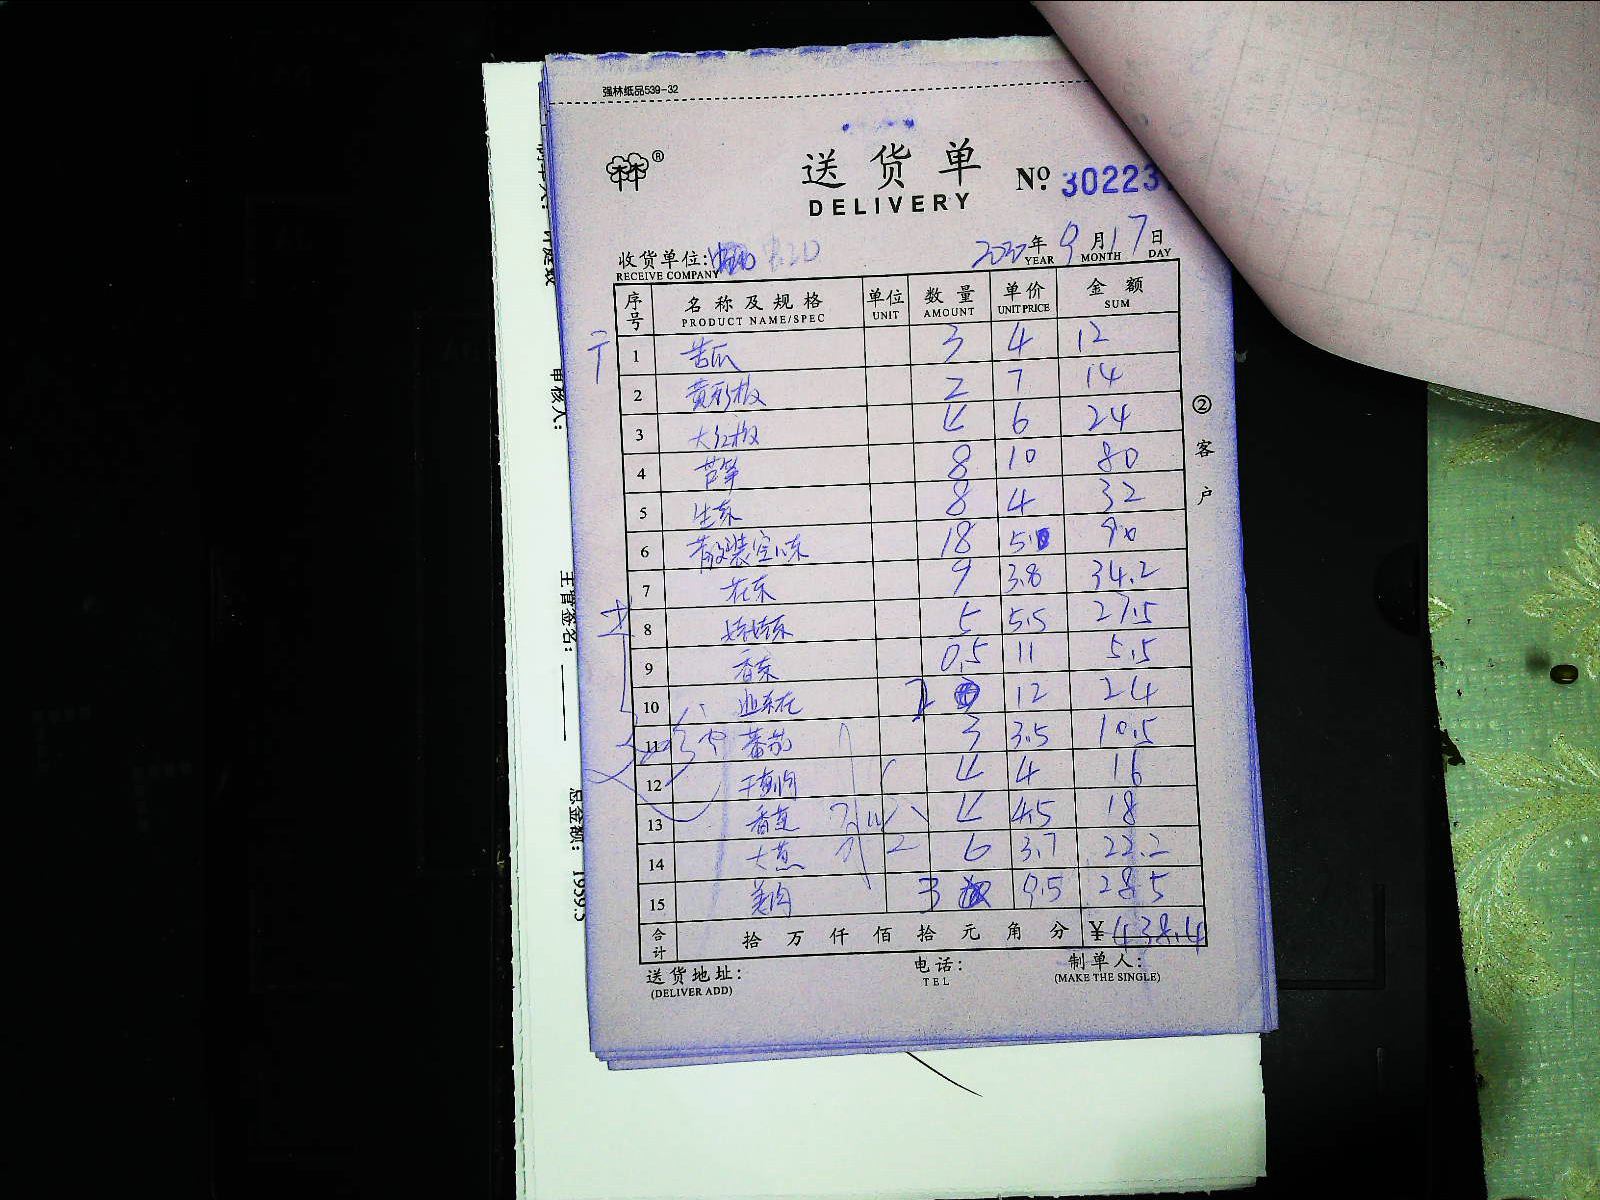 强林纸品539-32
®
送货单
DELIVERY
№ 30223
收货单位:
RECEIVE COMPANY
2020年 9月17日
YEAR MONTH DAY
序号 名称及规格 单位 数量 单价 金额
PRODUCT NAME/SPEC UNIT AMOUNT UNIT PRICE SUM
1 苦瓜 3 4 12
2 黄彩椒 2 7 14
3 大红椒 4 6 24
4 芦笋 8 10 80
5 生菜 8 4 32
6 散装包心菜 18 5 90
7 花菜 9 3.8 34.2
8 娃娃菜 5 5.5 27.5
9 香菜 0.5 11 5.5
10 韭菜花 2 12 24
11 番茄 3 3.5 10.5
12 4 4 16
13 香芋 4 4.5 18
14 大葱 6 3.7 22.2
15 3 9.5 28.5
合计 拾万仟佰拾元角分 ¥438.4
送货地址: 电话: 制单人:
(DELIVER ADD) TEL (MAKE THE SINGLE)
②客户
审核人:
主管签名:
总金额: 1959.5